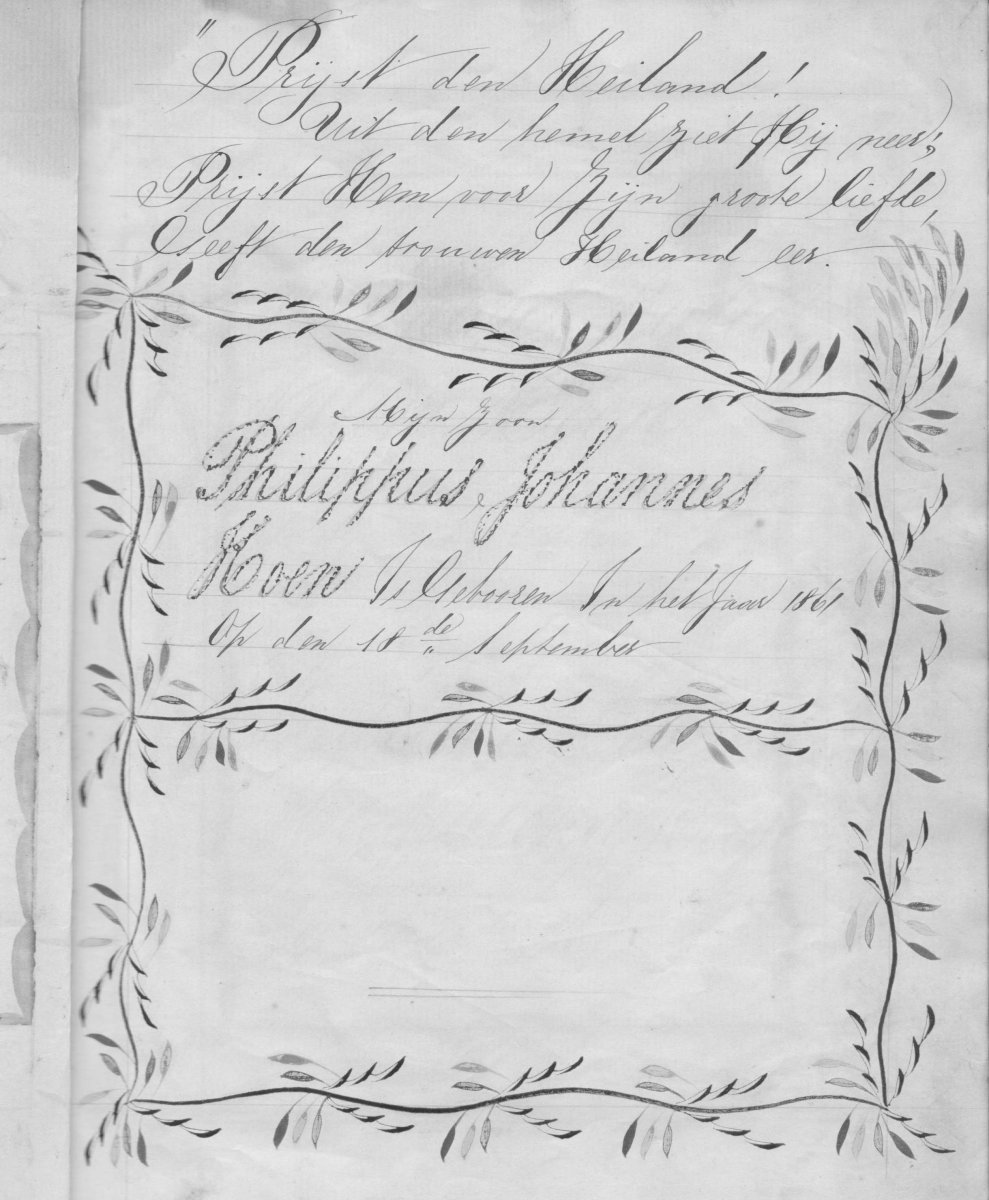 "Prijst den Heiland!
Uit den hemel ziet Hij neer;
Prijst Hem voor Zijn groote liefde,
Geeft den trouwen Heiland eer.
Mijn Zoon
Philippus Johannes
Koen Is Gebooren In het Jaar 1861
Op den 18de September